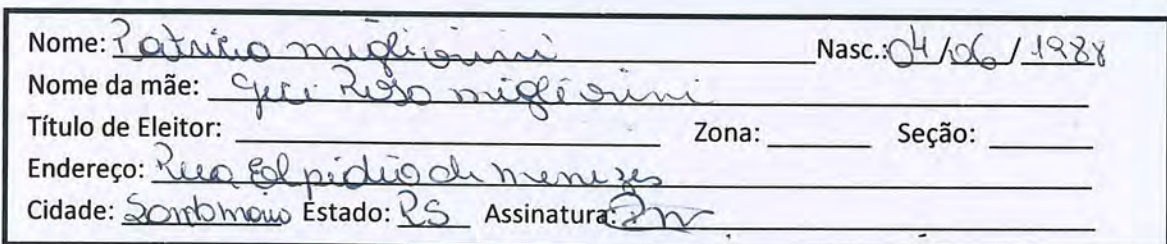 Nome: Patricia migliorini Nasc.: 04/06/1988
Nome da mãe: Geci Rosa migliorini
Título de Eleitor: Zona: Seção:
Endereço: Rua Elpidio de menezes
Cidade: Estado: RS Assinatura: